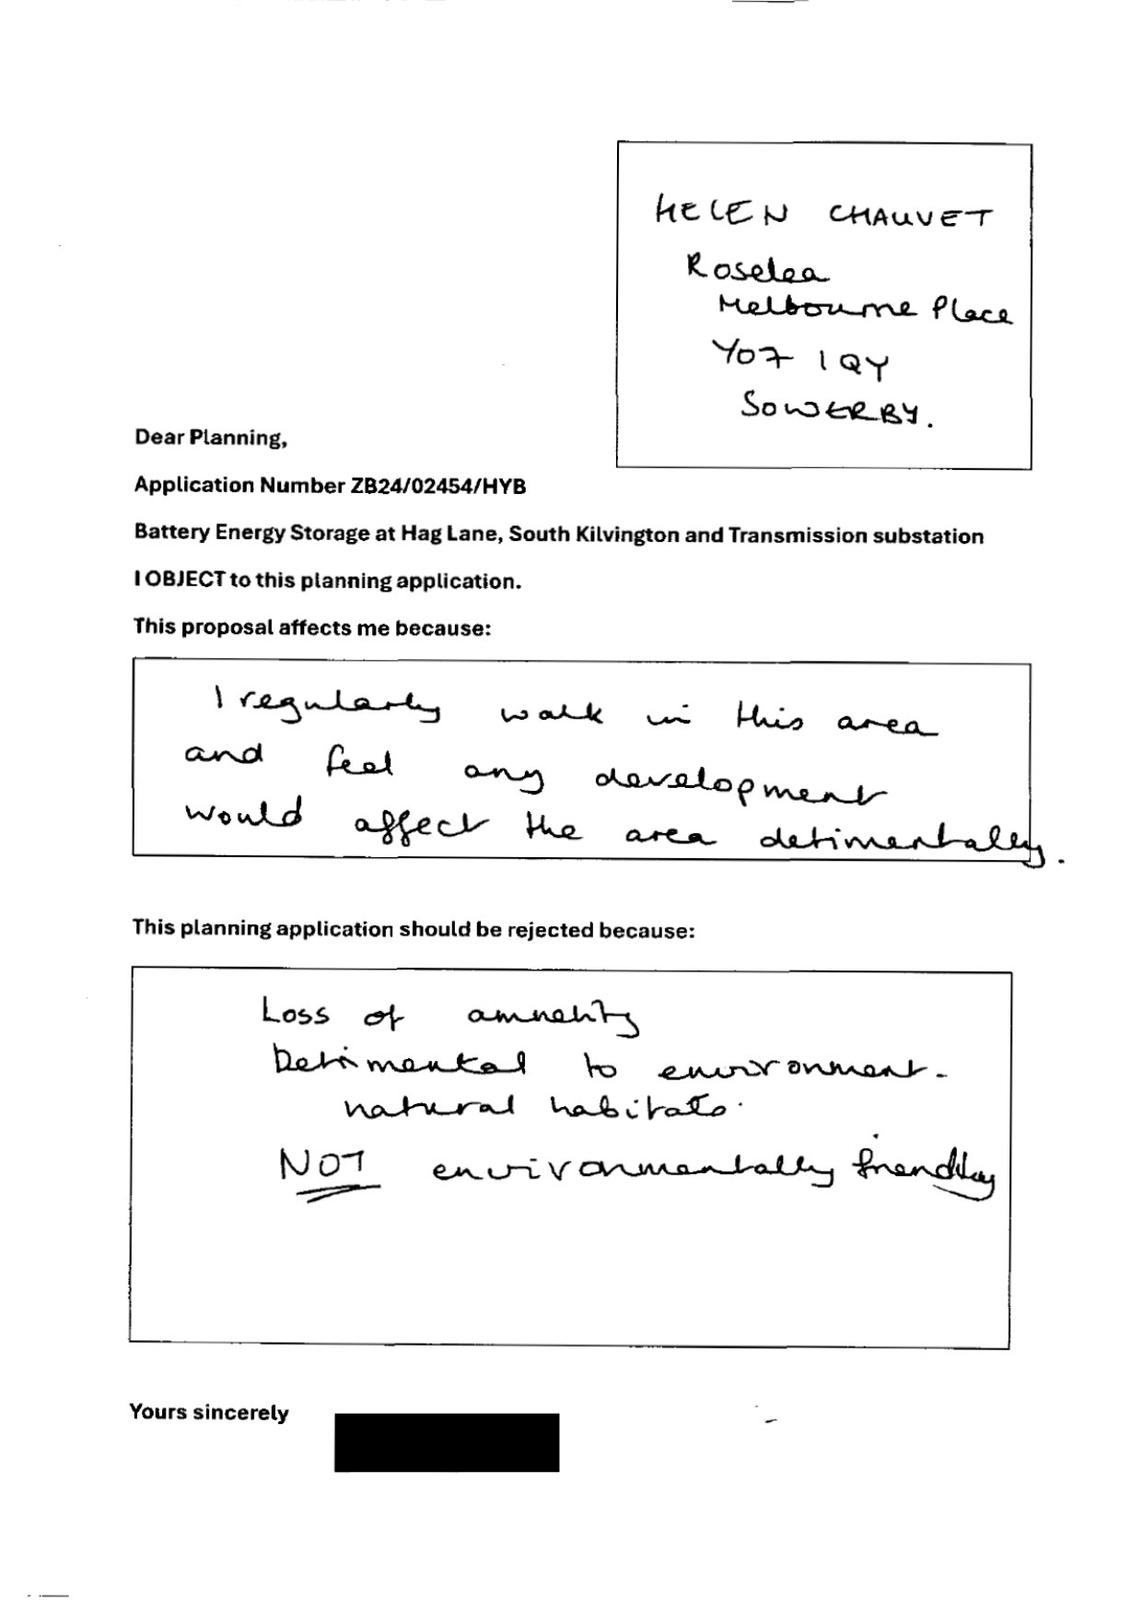 HELEN CHAUVET
Roselea
Melbourne Place
YO7 1QY
SOWERBY.
Dear Planning,
Application Number ZB24/02454/HYB
Battery Energy Storage at Hag Lane, South Kilvington and Transmission substation
I OBJECT to this planning application.
This proposal affects me because:
I regularly walk in this area
and feel any development
would affect the area detrimentally.
This planning application should be rejected because:
Loss of amnenity
Detrimental to environment -
natural habitats.
NOT environmentally friendly
Yours sincerely